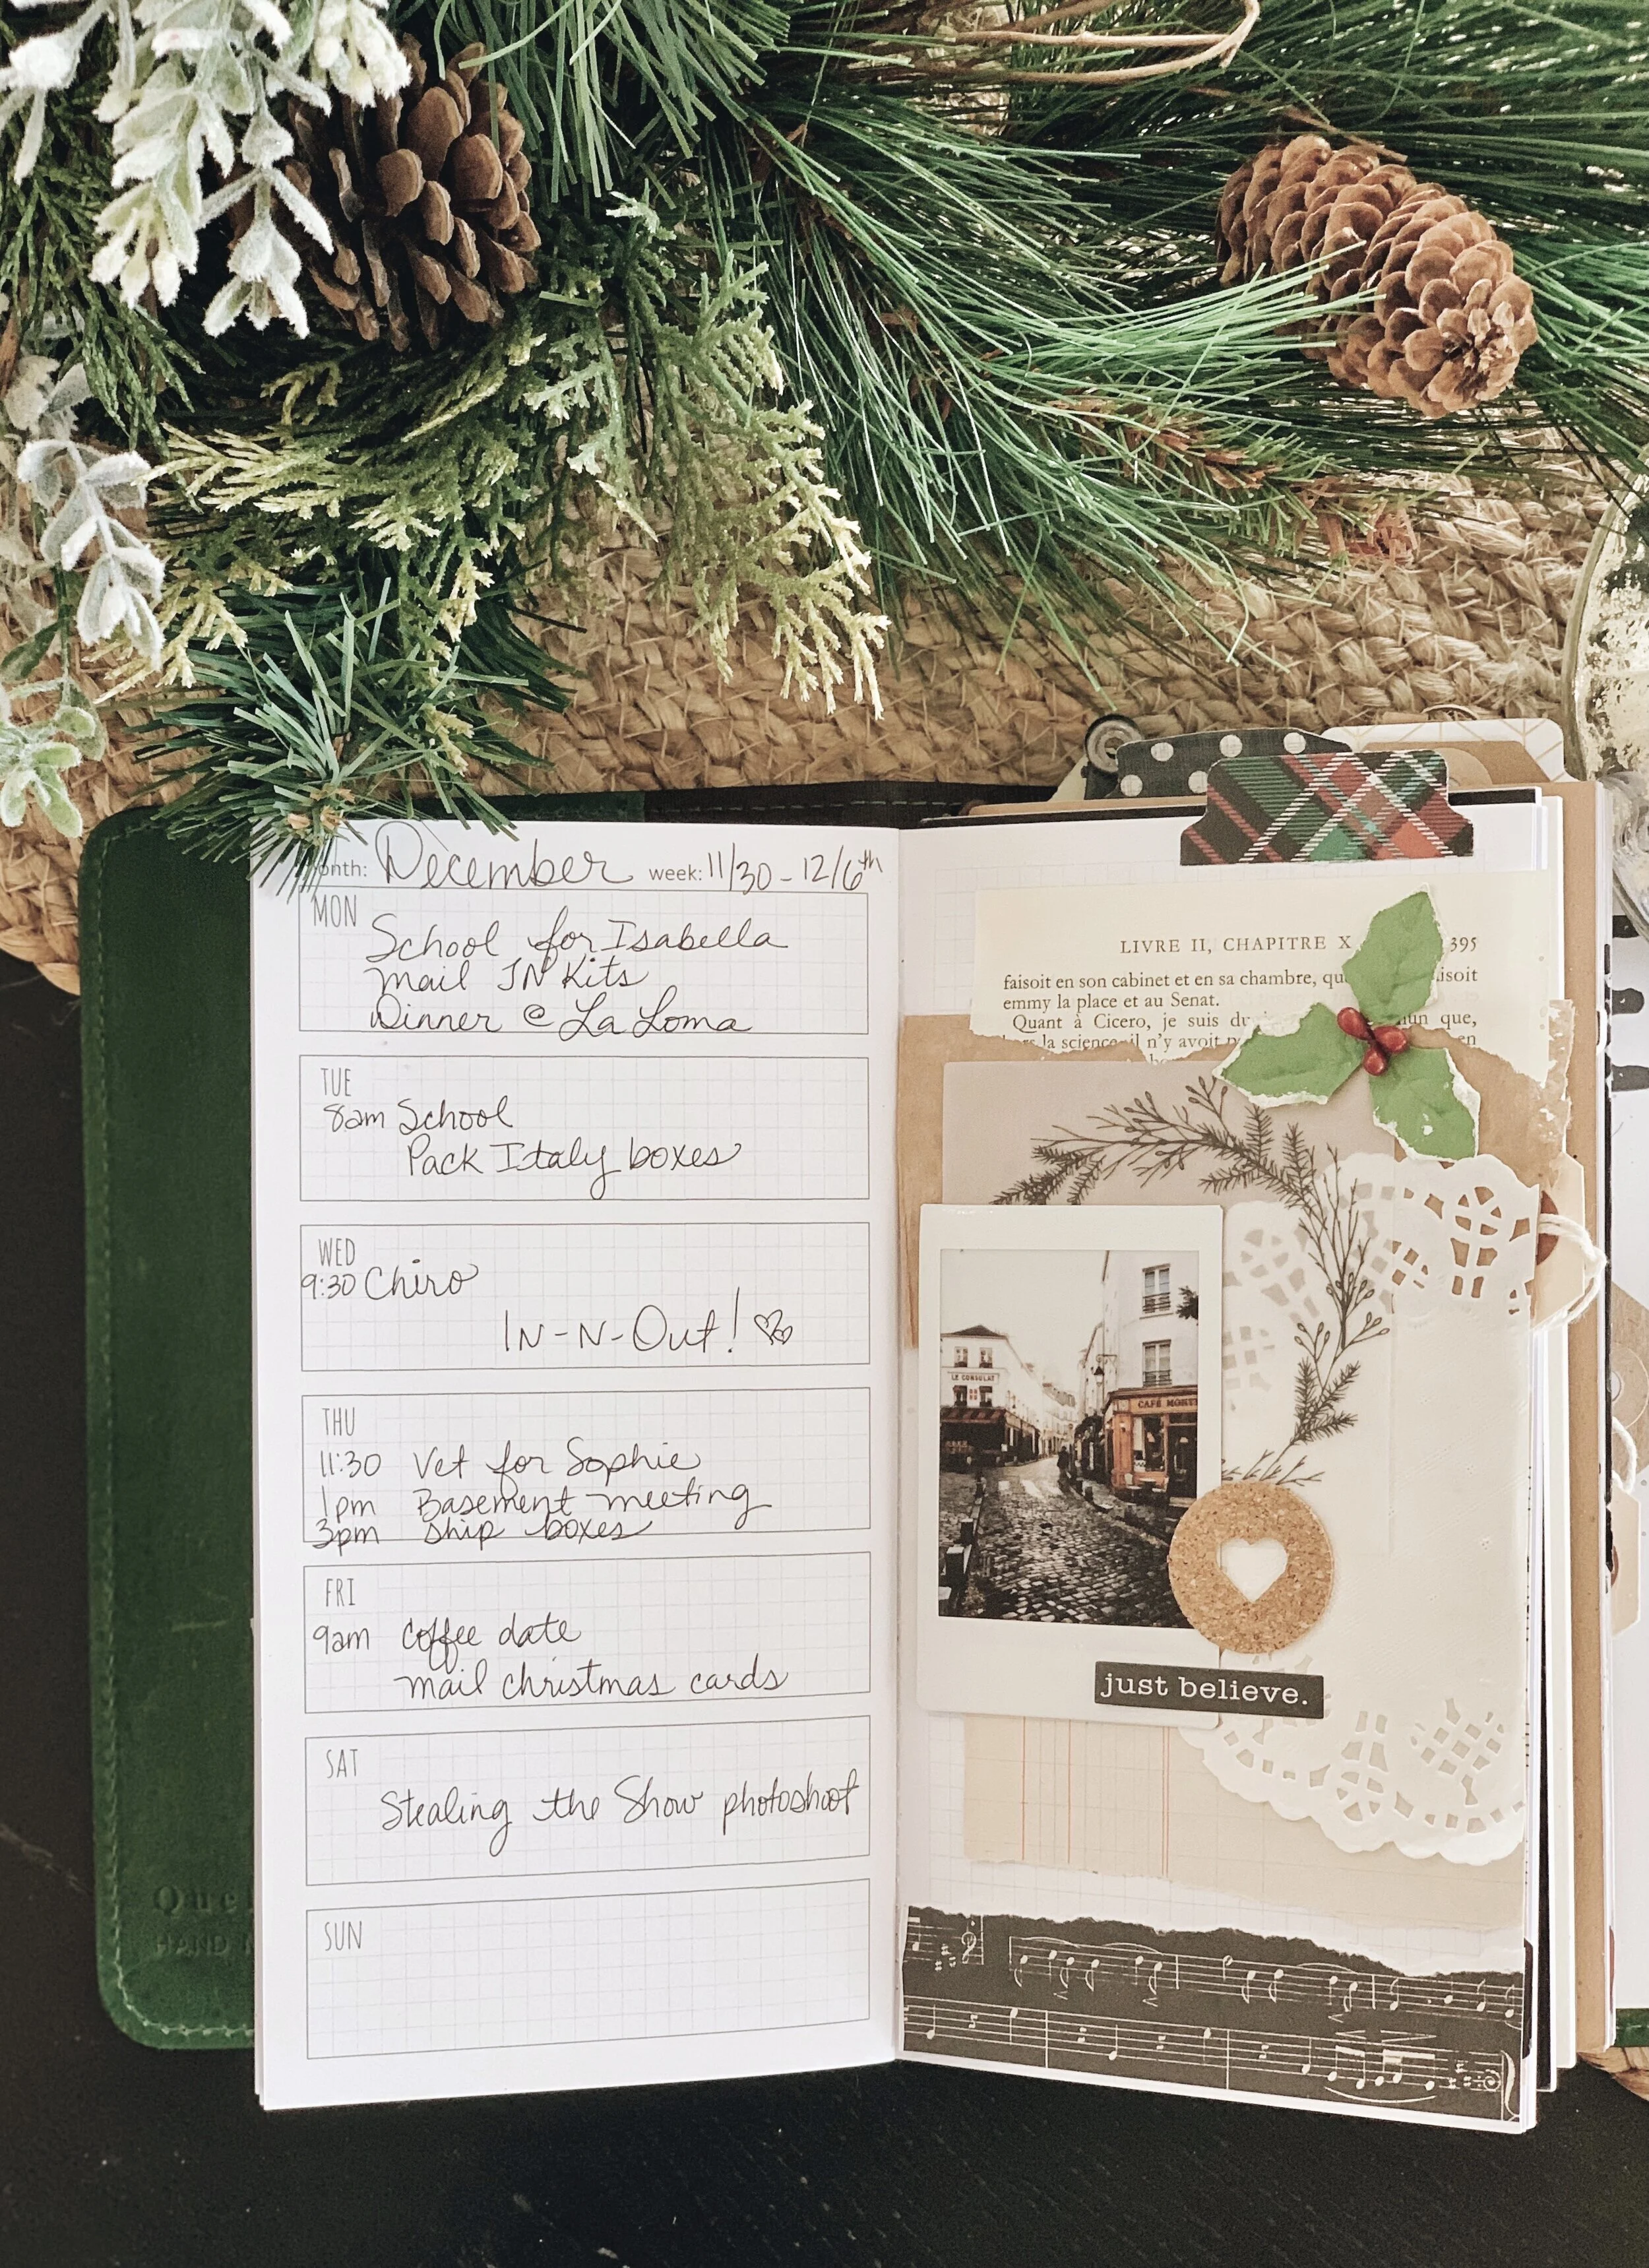 month: December week: 11/30 - 12/6th
MON
School for Isabella
Mail JN Kits
Dinner @ La Loma
TUE
8am School
Pack Italy boxes
WED
9:30 Chiro
IN-N-Out!
THU
11:30 Vet for Sophie
1pm Basement meeting
3pm ship boxes
FRI
9am coffee date
mail christmas cards
SAT
Stealing the Show photoshoot
SUN
LIVRE II, CHAPITRE X 395
faisoit en son cabinet et en sa chambre, isoit
emmy la place et au Senat.
Quant à Cicero, je suis du que,
la science il n'y avoit en
LE CONSULAT
CAFÉ
just believe.
HAND